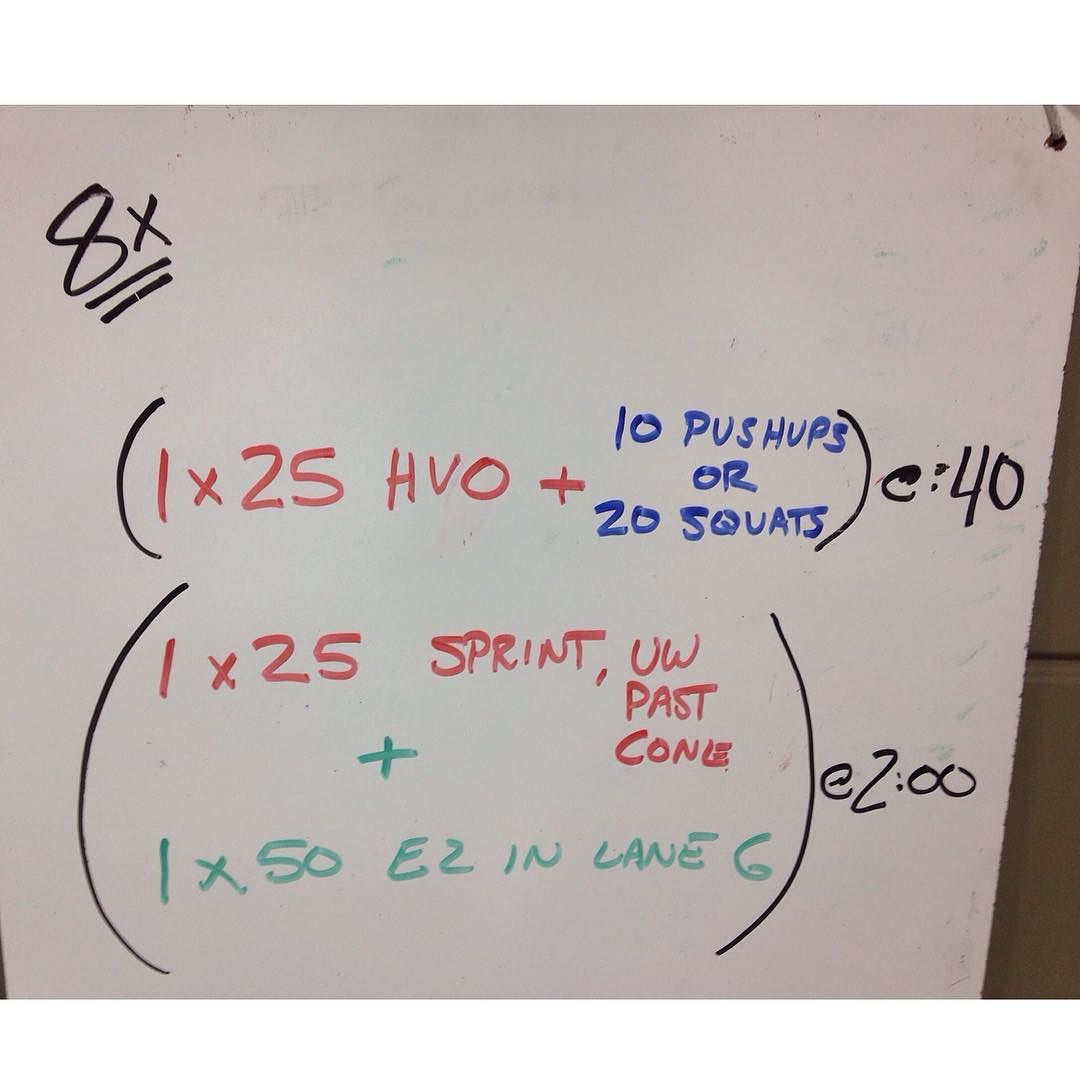 8x
(1 x 25 HVO + 10 PUSHUPS OR 20 SQUATS) @ :40
(1 x 25 SPRINT, UW PAST CONE
+
1 x 50 EZ IN LANE 6) @ 2:00